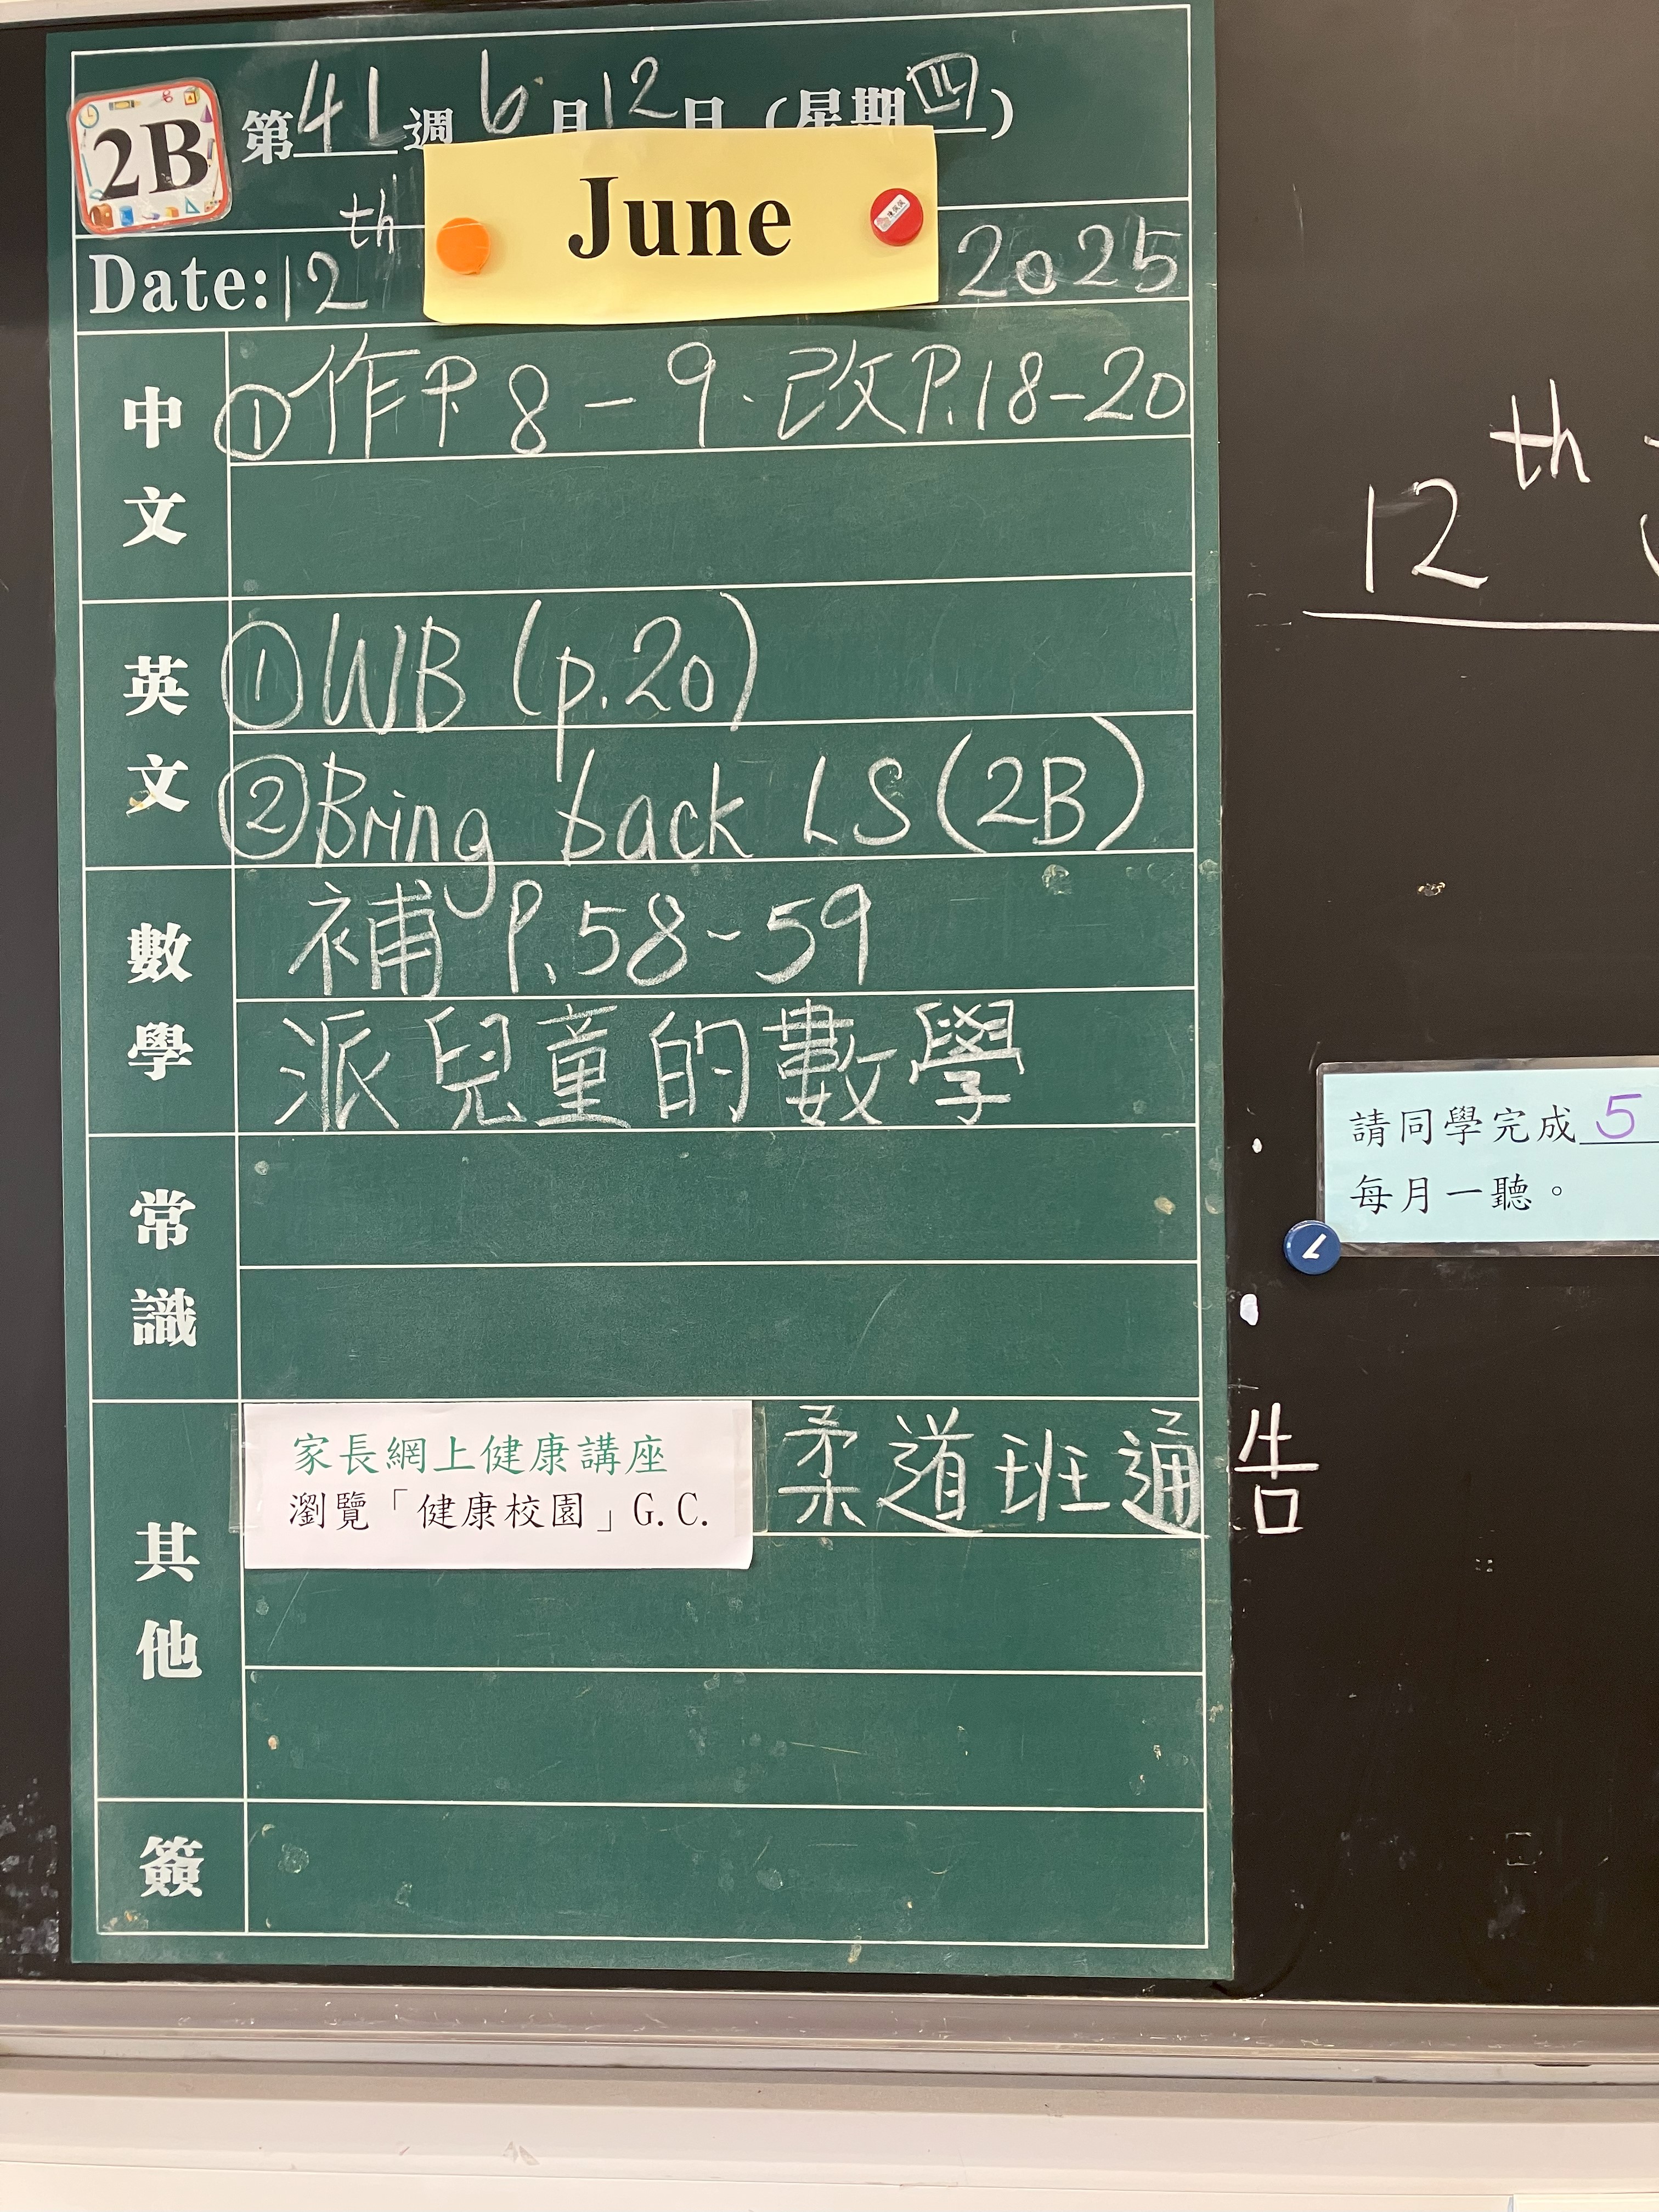 2B
第41週 6月12日（星期四）
Date: 12th June 2025
中文
①作P. 8 - 9. 改P.18-20
英文
①WB (p.20)
②Bring back LS(2B)
數學
補 P.58-59
派兒童的數學
常識
其他
家長網上健康講座
瀏覽「健康校園」G.C.
柔道班通告
簽
12th
請同學完成5
每月一聽。